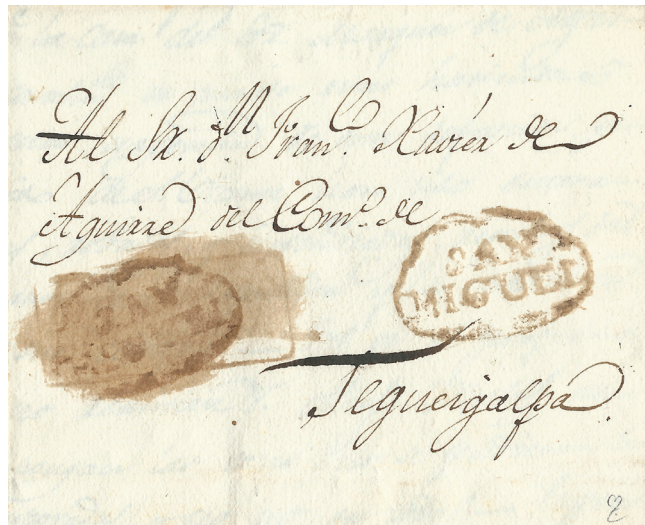 Al Sr. Dn. Franco. Xavier de
Aguirre del Como. de
SAN
MIGUEL
SAN
MIGUEL
Tegucigalpa.